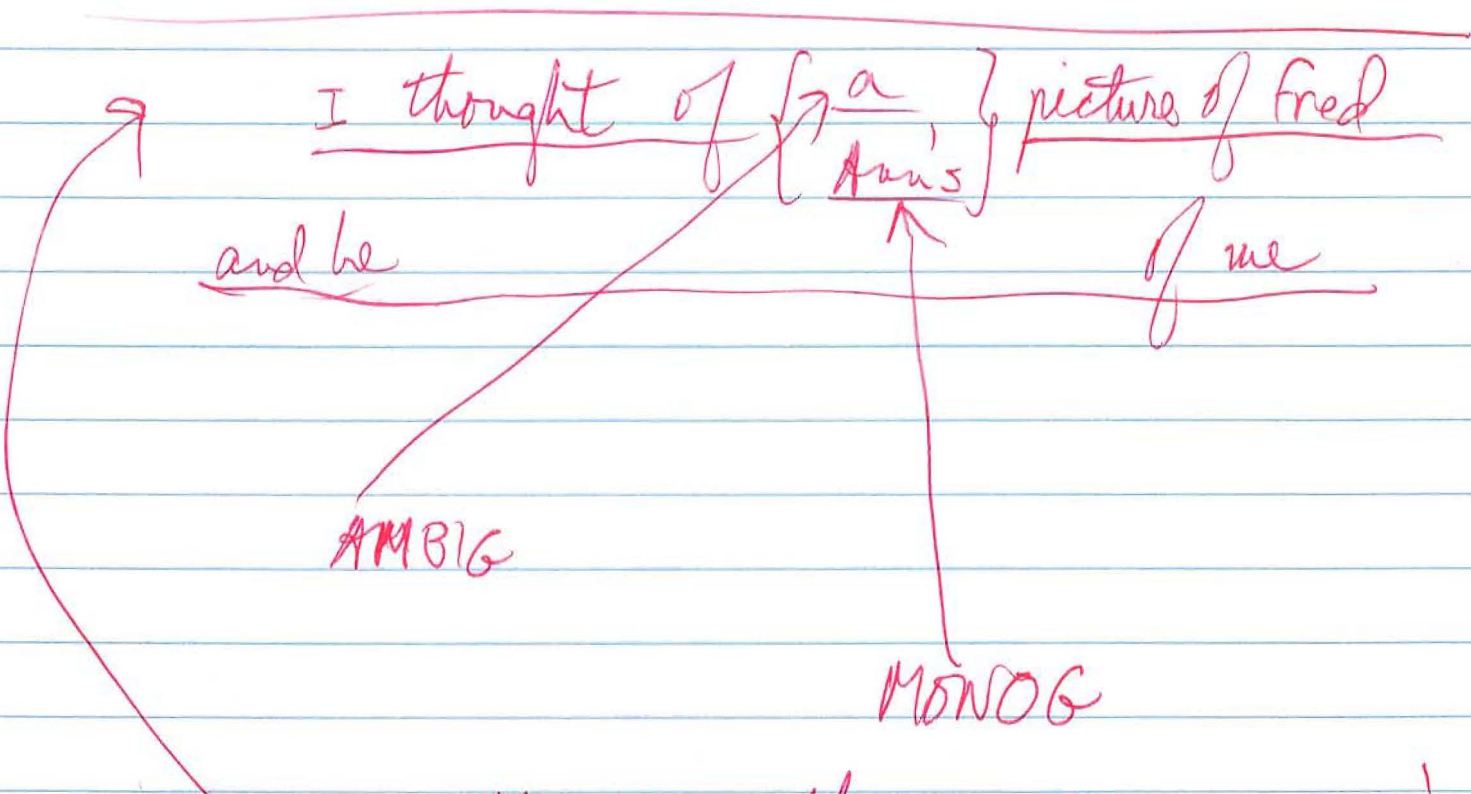 I thought of { a } picture of Fred
Ann's
and he of me
AMBIG
MONOG